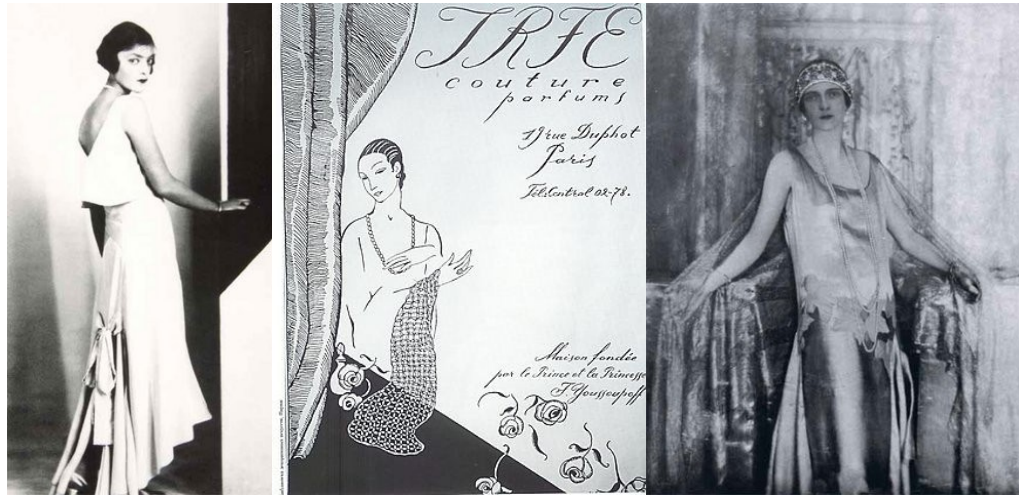 IRFE
couture
parfums
19 rue Duphot
Paris
Tél: Central 02-78.
Maison fondée
par le Prince et la Princesse
F. Youssoupoff